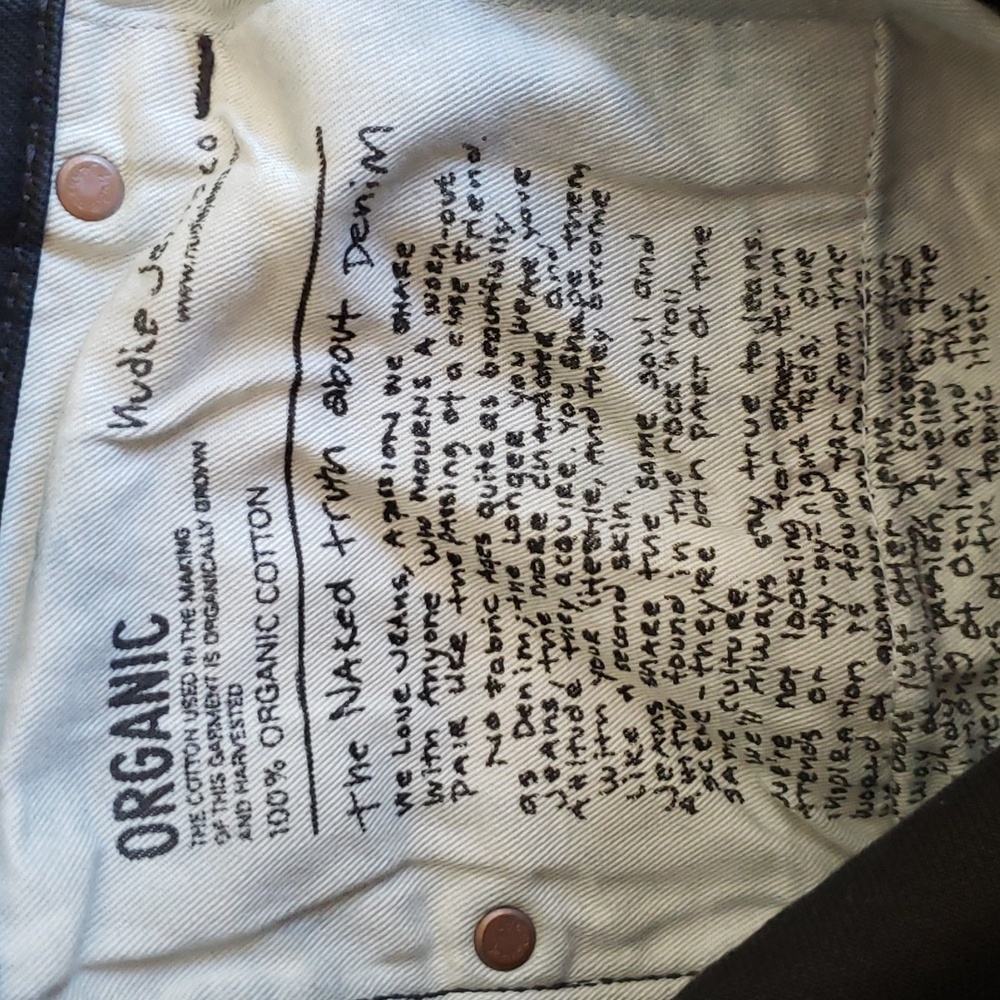 ORGANIC
THE COTTON USED IN THE MAKING
OF THIS GARMENT IS ORGANICALLY GROWN
AND HARVESTED
100% ORGANIC COTTON
Nudie Je
the NAKed truth about Denim
We Love JeANS, A PASSION we SHARE
with Anyone who MOURNS A WORN-out
PAIR LIKE the PASSING of a close friend.
No fabric AGes quite as beautifully
as Denim, the Longer you WeAR youR
JeANS, the MORE CHARACTER And
Attitude they ACQUIRE. You SHAPE them
with your lifestyle, And they become
Like A second skin.
JeANS SHARE the same soul and
Attitude found in the rock'n'roll
scene - they're both PART of the
SAME culture.
We'll Always stay true to jeans.
We're not looking for short term
trends or fly-by-night fads, our
inspiration is found far from the
of denim and